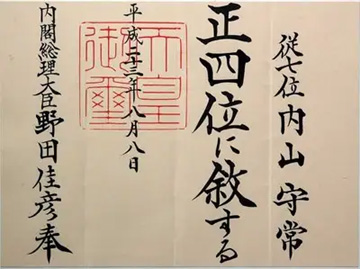 従七位内山守常
正四位に敘する
天皇御璽
平成二十三年八月八日
内閣総理大臣野田佳彦奉